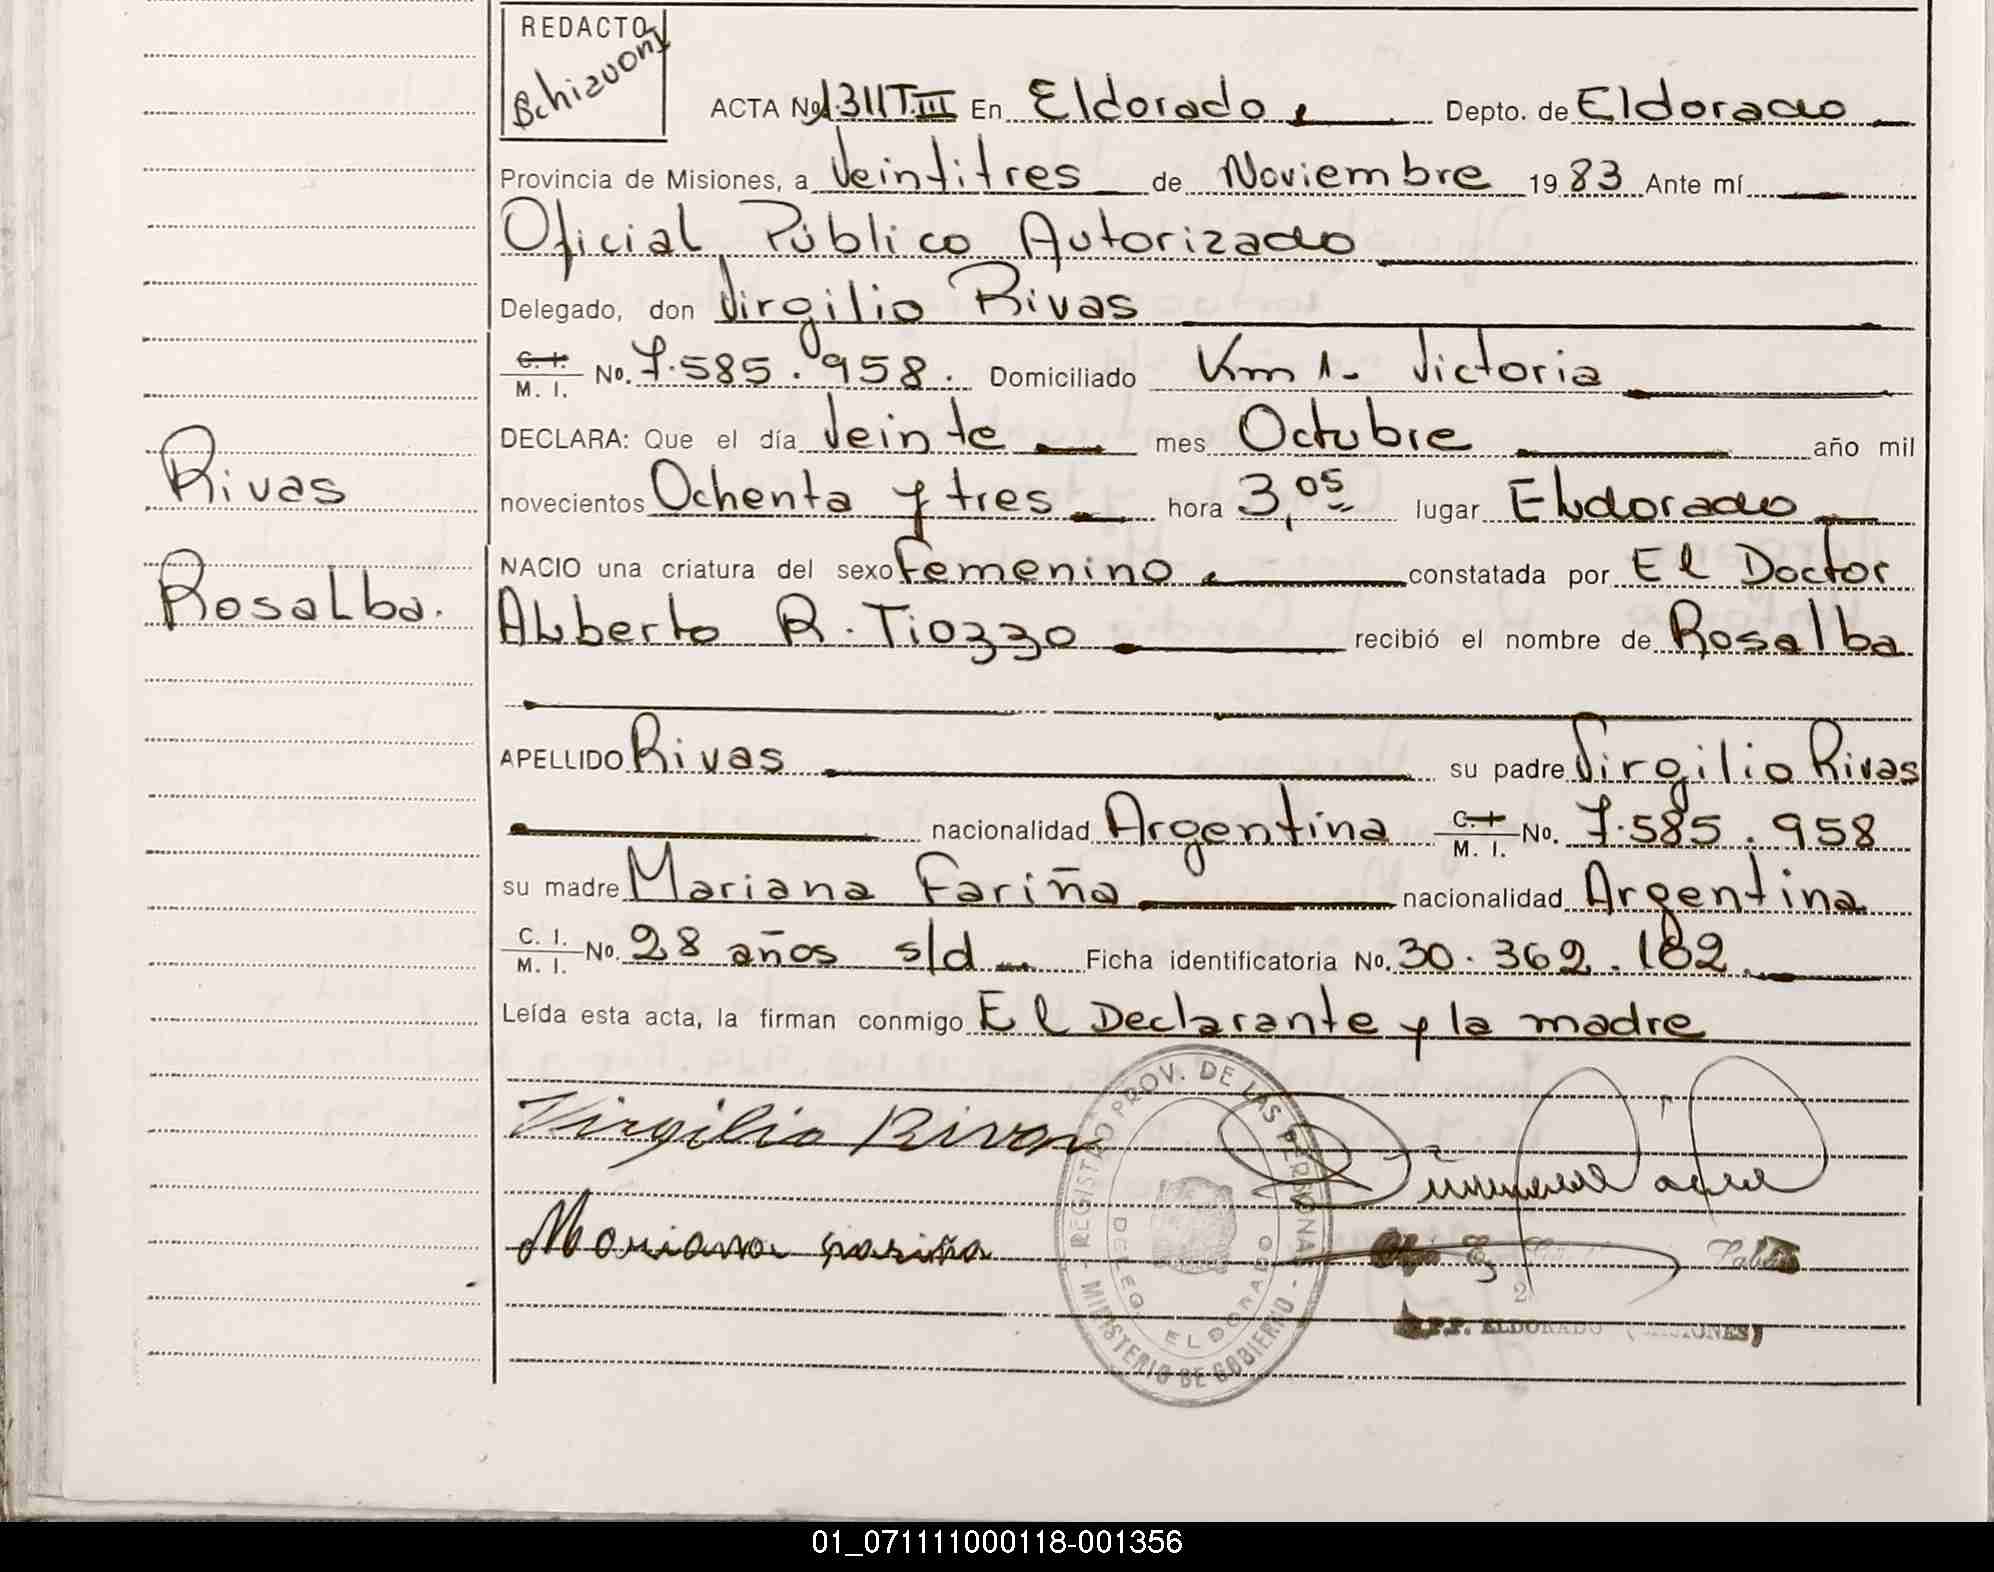 REDACTO
Schizuoni
ACTA No 1311 T.III En Eldorado, Depto. de Eldorado
Provincia de Misiones, a Veintitres de Noviembre 1983 Ante mí
Oficial Público Autorizado
Delegado, don Virgilio Rivas
C. I. M. I. No. 7.585.958. Domiciliado Km 1. Victoria
DECLARA: Que el día Veinte mes Octubre año mil
novecientos Ochenta y tres hora 3,05 lugar Eldorado
Rivas
NACIO una criatura del sexo Femenino, constatada por El Doctor
Rosalba.
Alberto R. Tiozzo recibió el nombre de Rosalba
APELLIDO Rivas su padre Virgilio Rivas
nacionalidad Argentina C. I. M. I. No. 7.585.958
su madre Mariana Fariña nacionalidad Argentina
C. I. M. I. No. 28 años s/d Ficha identificatoria No. 30.362.182.
Leída esta acta, la firman conmigo El Declarante y la madre
Virgilio Rivas
Mariana Fariña
REGISTRO PROV. DE LAS PERSONAS - MINISTERIO DE GOBIERNO -
DELEG. ELDORADO
ELDORADO (MISIONES)
01_071111000118-001356